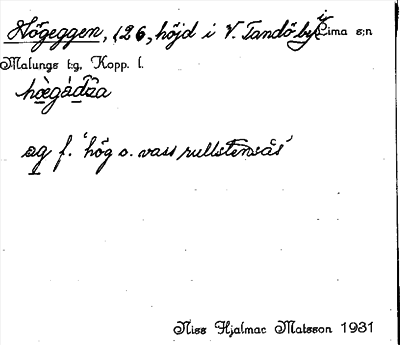 Högeggen, 126, höjd i V. Tandö by i Lima s:n
Malungs t:g, Kopp. l.
hœgàdza
œg f. 'hög o. vass rullstensås'
Niss Hjalmar Matsson 1931